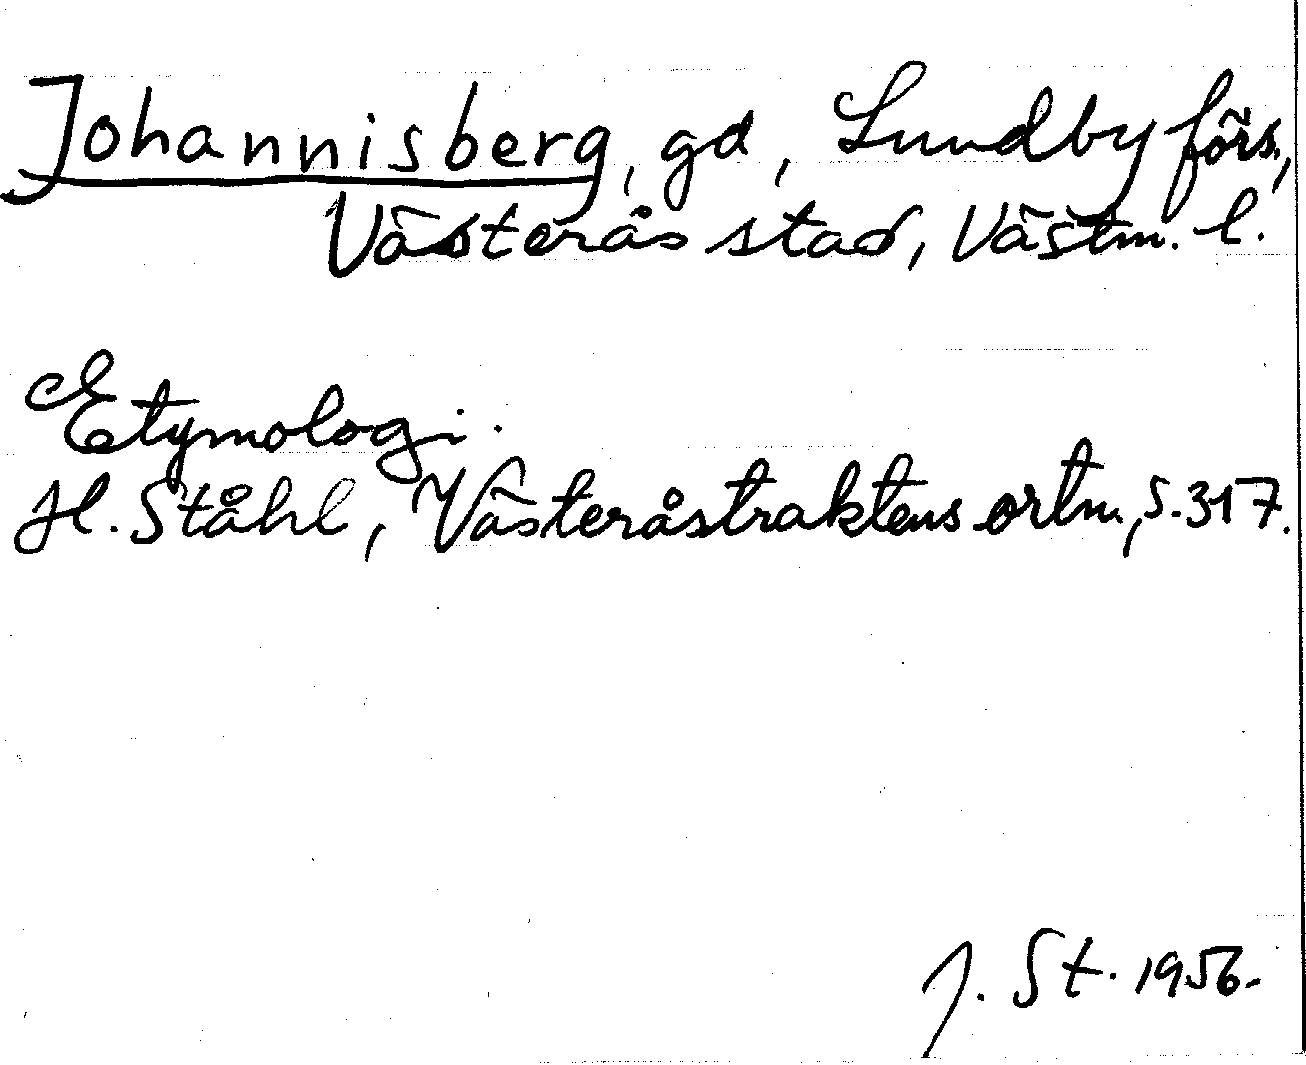 Johannisberg, gd, Lundby förs.,
Västerås stad, Västm. l.
Etymologi.
H. Ståhl, Västeråstraktens ortn., s. 317.
J. St. 1956.